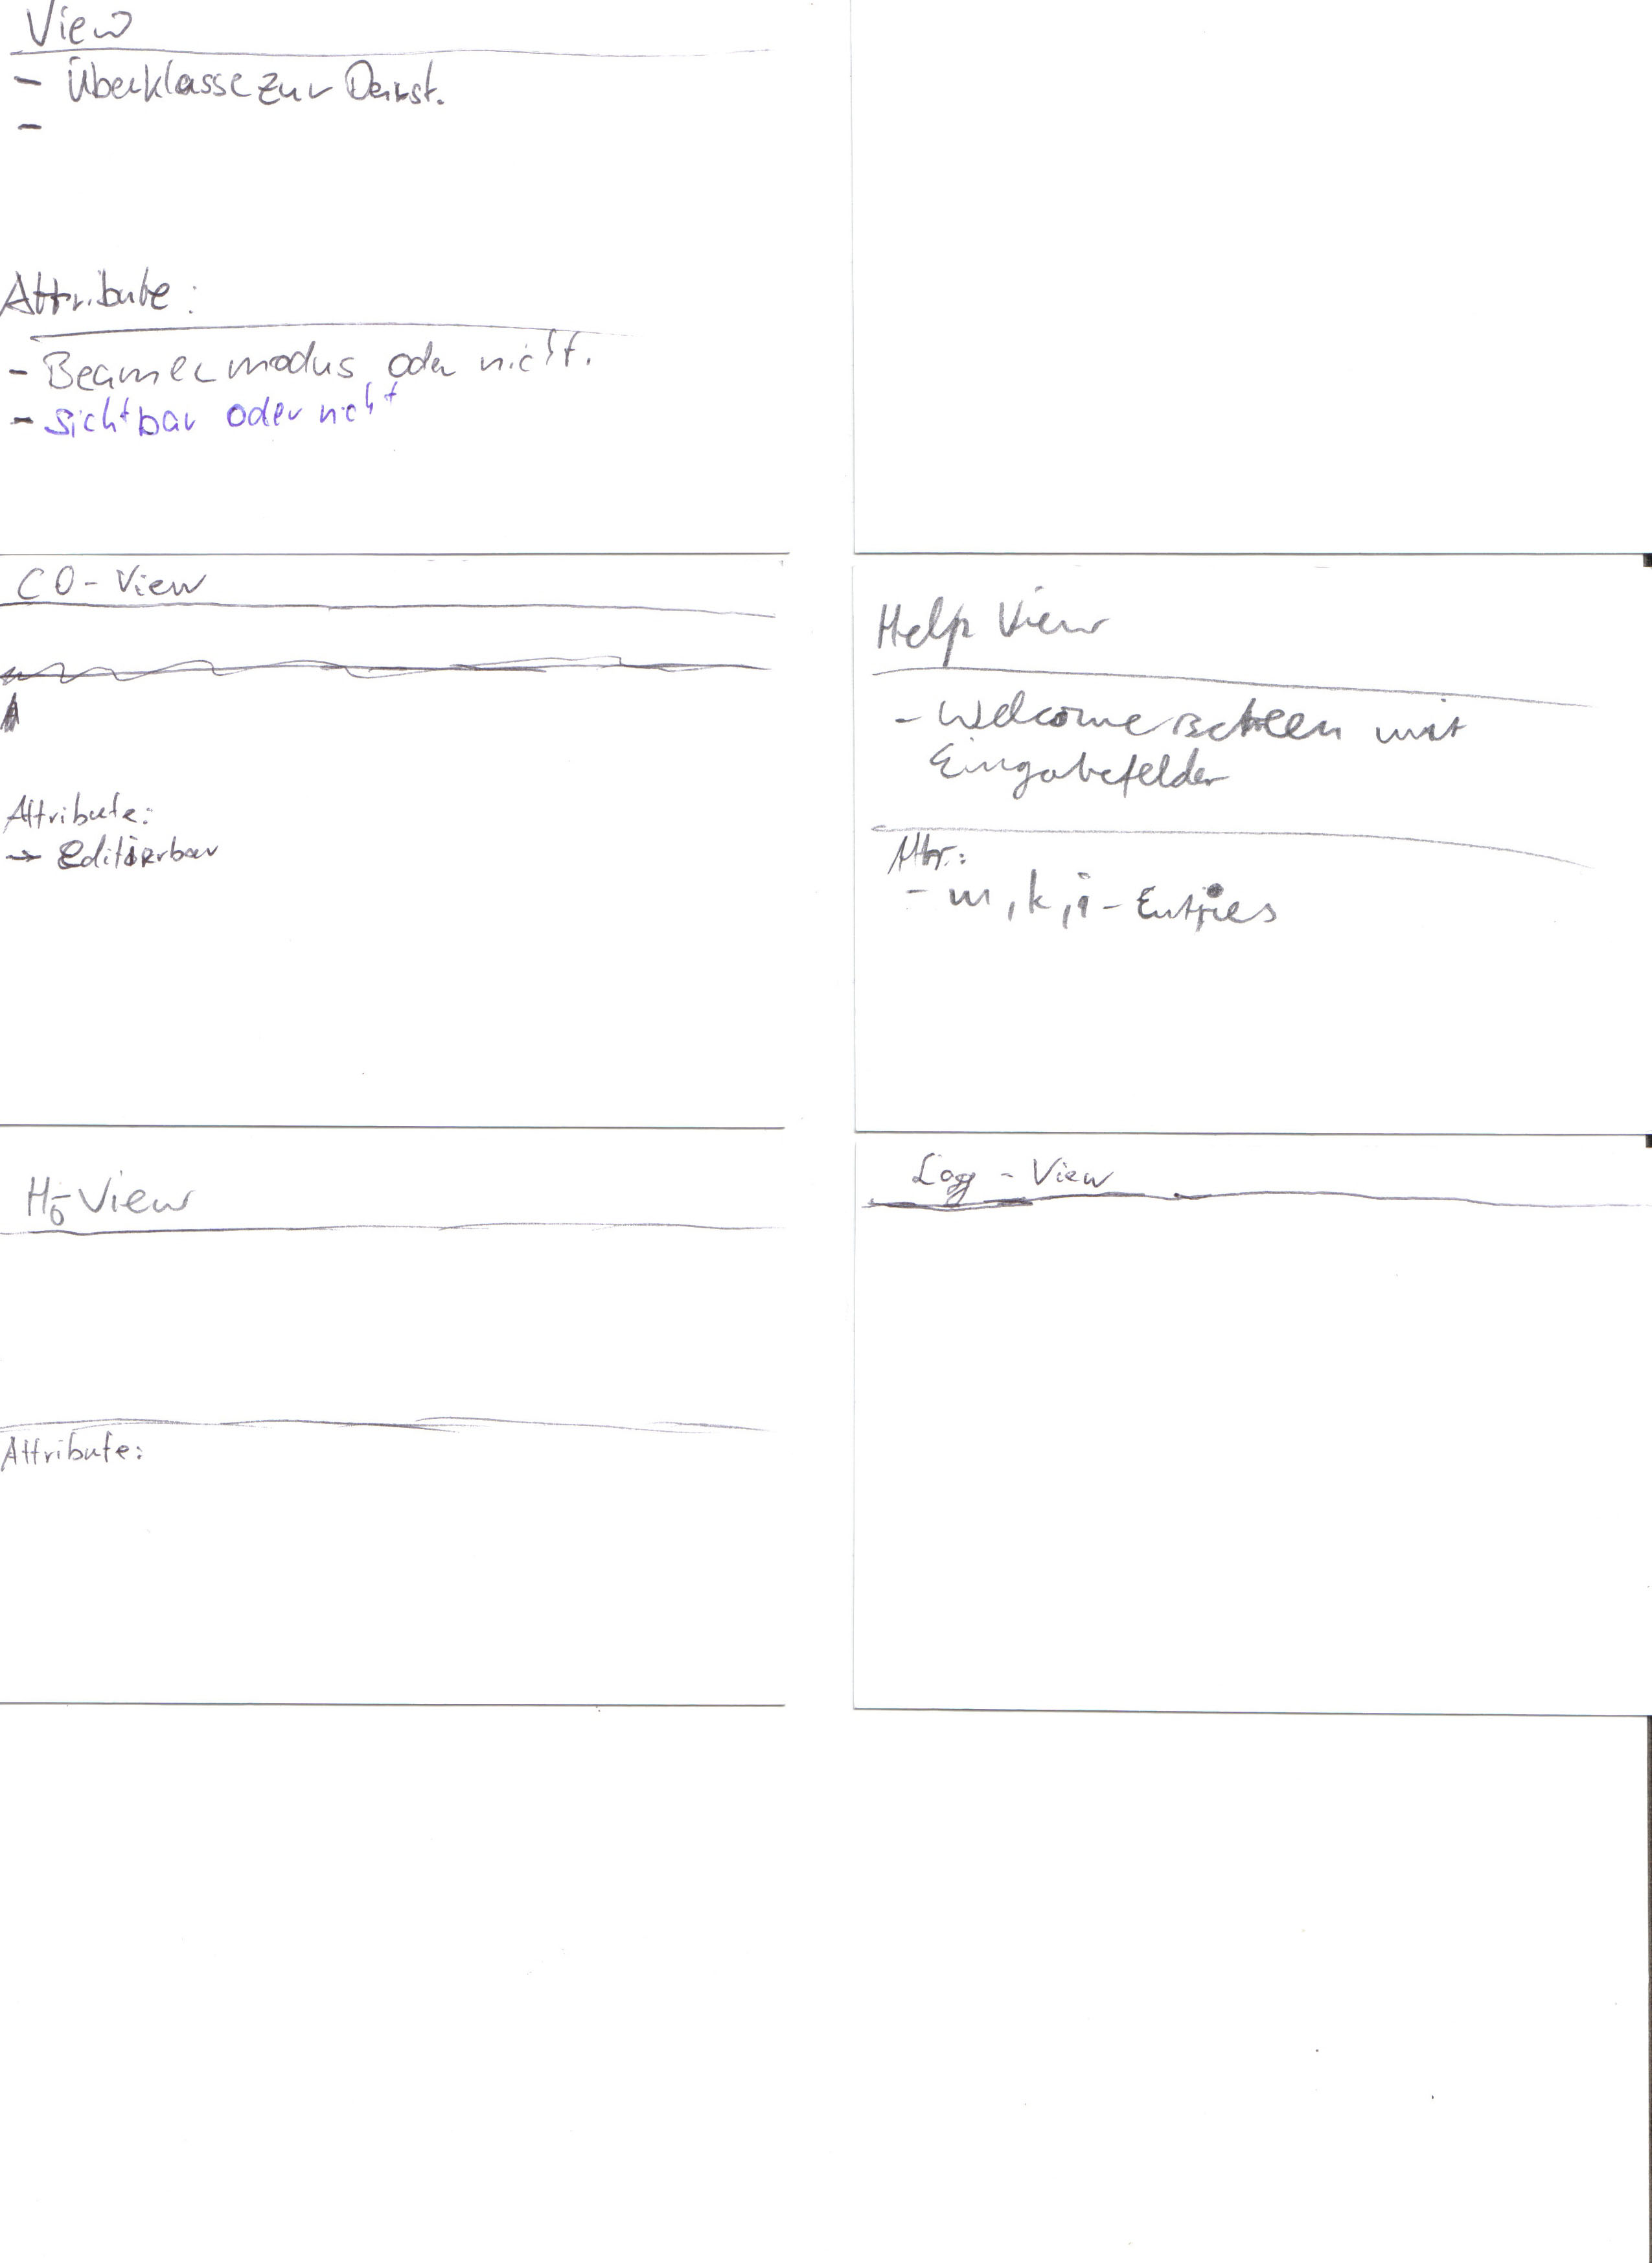 View
- Überklasse zur Darst.
-
Attribute:
- Beamermodus oder nicht.
- Sichtbar oder nicht
CO-View
Attribute:
→ Editierbar
Help View
- Welcomescreen mit
Eingabefelder
Attr.:
- m, k, i - Entries
-View
Attribute:
Log - View